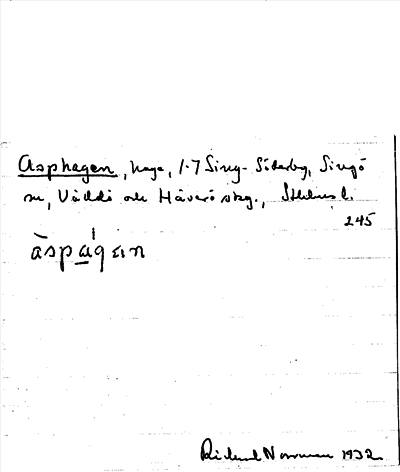 Asphagen, hage, 1-7 Sing-Söderby, Singö
sn, Väddö och Häverö skg., Sthlms l.
245
àspágən
Rickard Norrman 1932